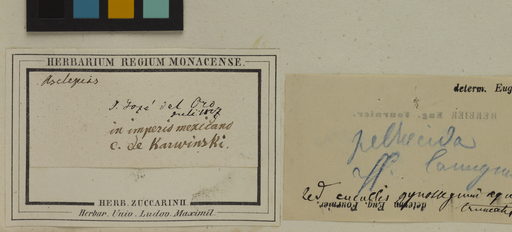 HERBARIUM REGIUM MONACENSE.
Asclepias
S. José del Oro
Juli 1827
in imperio mexicano
C. de Karwinski.
HERB. ZUCCARINII
Herbar. Univ. Ludov. Maximil.
determ. Eug
HERBIER Eug. Fournier.
pellucida
ff.
sed cucullis gynostegium
determ Eug. Fournier.
truncatis